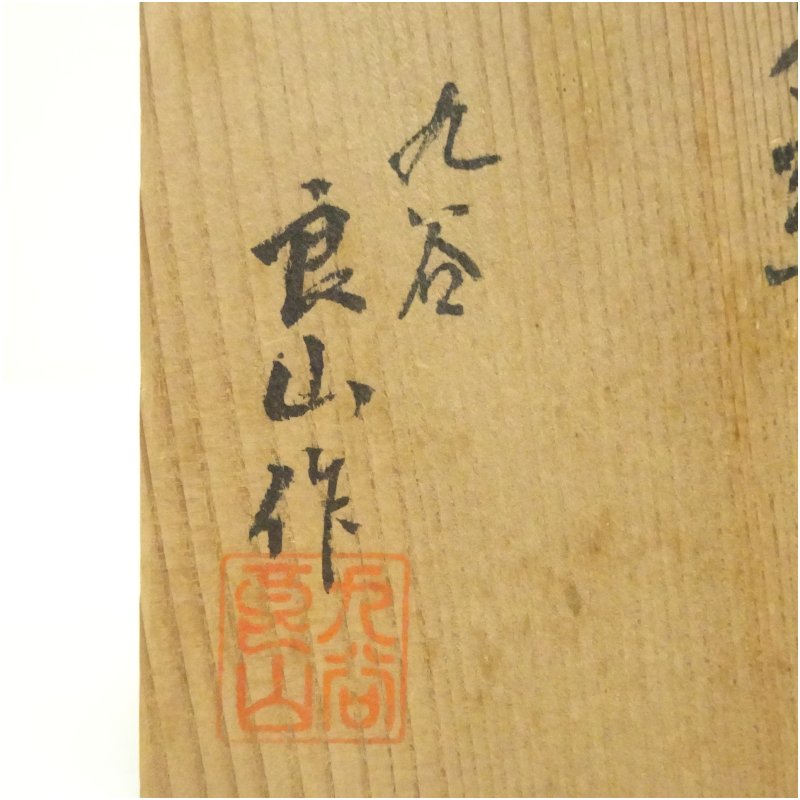 九谷
良山作
九谷
良山